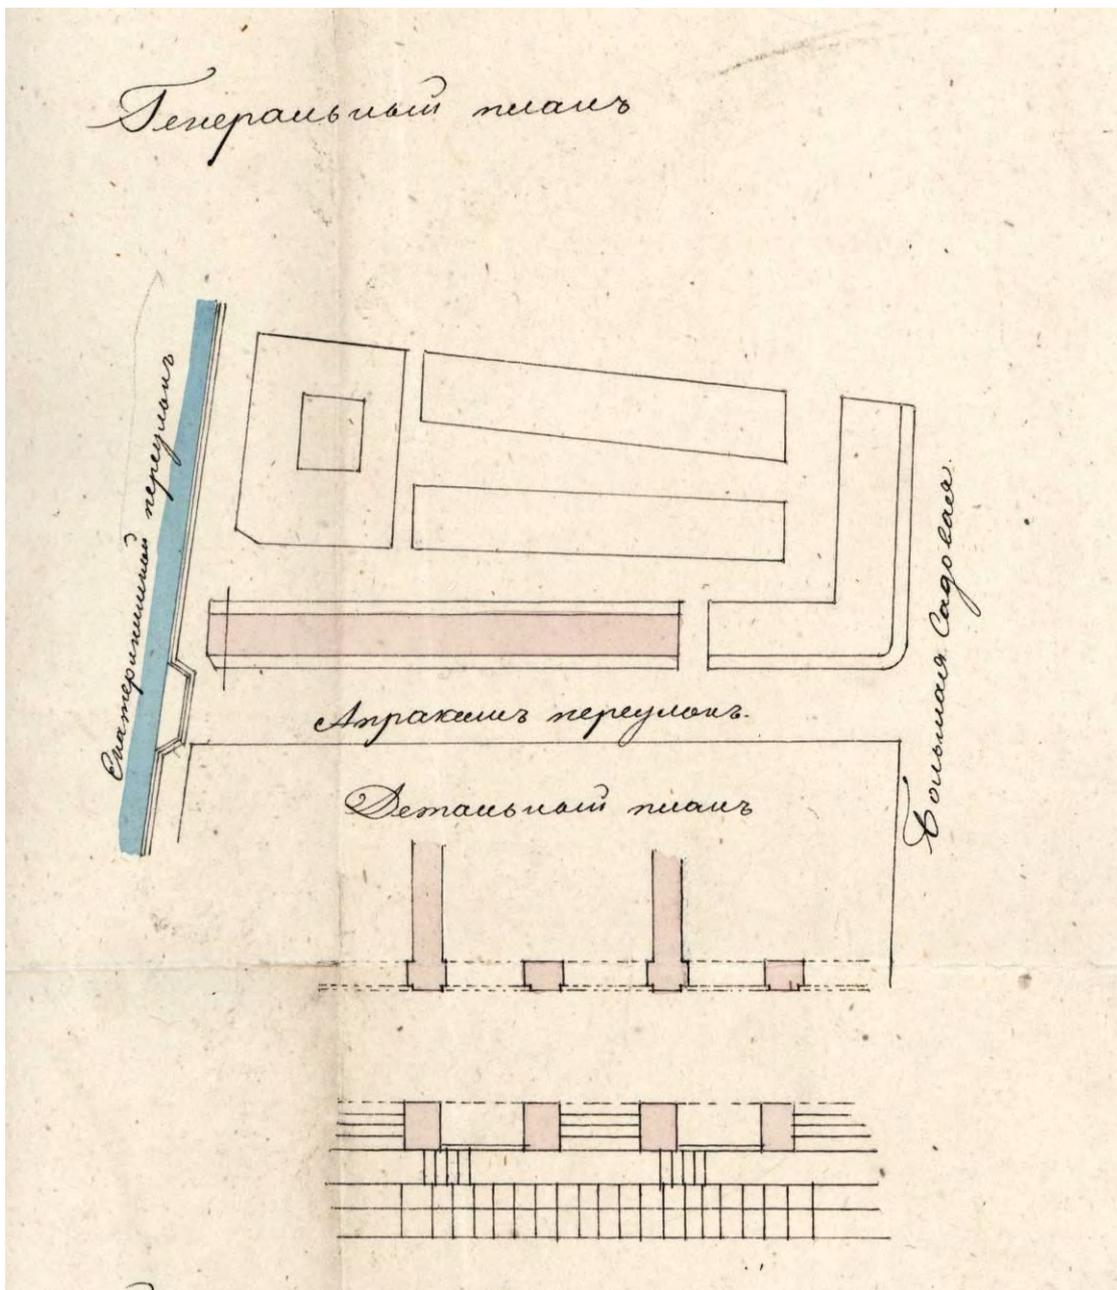 Генеральный планъ
Екатерининскій переулокъ
Апраксинъ переулокъ.
Большая Садовая.
Детальный планъ